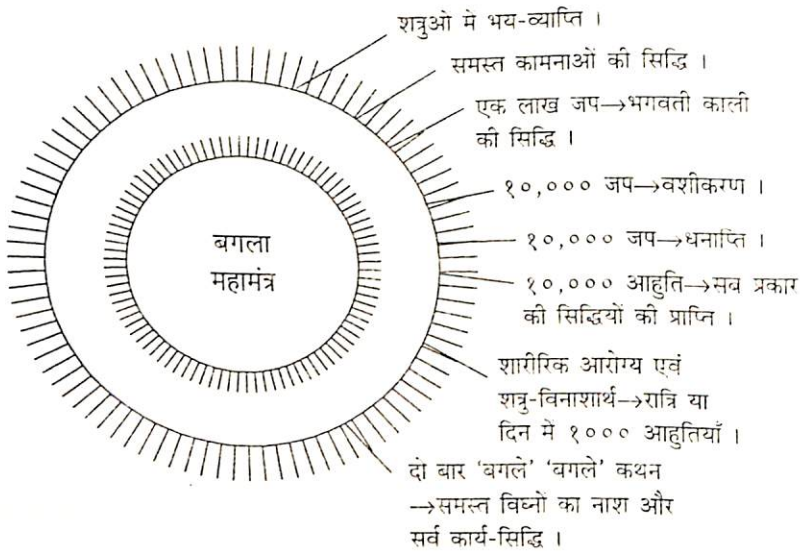 शत्रुओ मे भय-व्याप्ति ।
समस्त कामनाओं की सिद्धि ।
एक लाख जप→भगवती काली
की सिद्धि ।
१०,००० जप→वशीकरण ।
बगला
महामंत्र
१०,००० जप→धनाप्ति ।
१०,००० आहुति→सब प्रकार
की सिद्धियों की प्राप्ति ।
शारीरिक आरोग्य एवं
शत्रु-विनाशार्थ→रात्रि या
दिन में १००० आहुतियाँ ।
दो बार 'बगले' 'बगले' कथन
→समस्त विघ्नों का नाश और
सर्व कार्य-सिद्धि ।